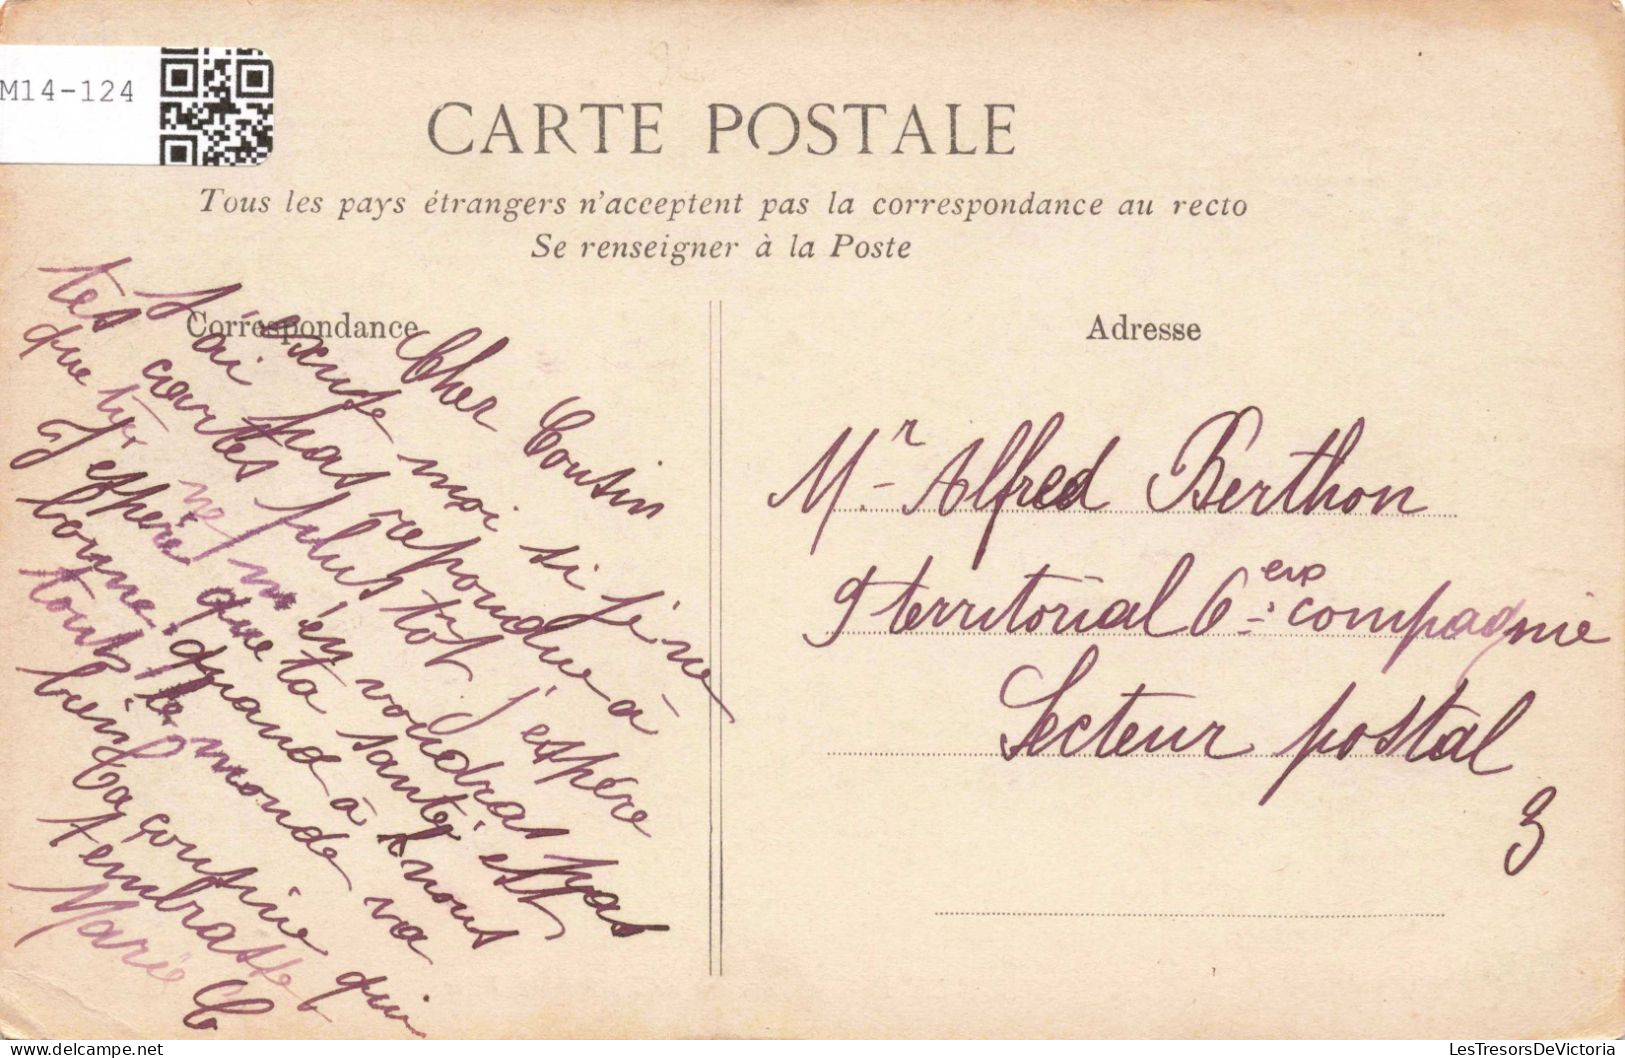 M14-124
CARTE POSTALE
Tous les pays étrangers n'acceptent pas la correspondance au recto
Se renseigner à la Poste
Correspondance
Cher Cousin
Excuse moi si je ne
t'ai pas repondue à
tes cartes plus tôt j'espère
que tu ne m'en voudras pas
J'espère que ta santé est
bonne. quand à nous
tout le monde va
bien Ta cousine qui
t'embrasse
Marie C
Adresse
Mr Alfred Berthon
9 territorial 6 compagnie
Secteur postal
3
LesTresorsDeVictoria